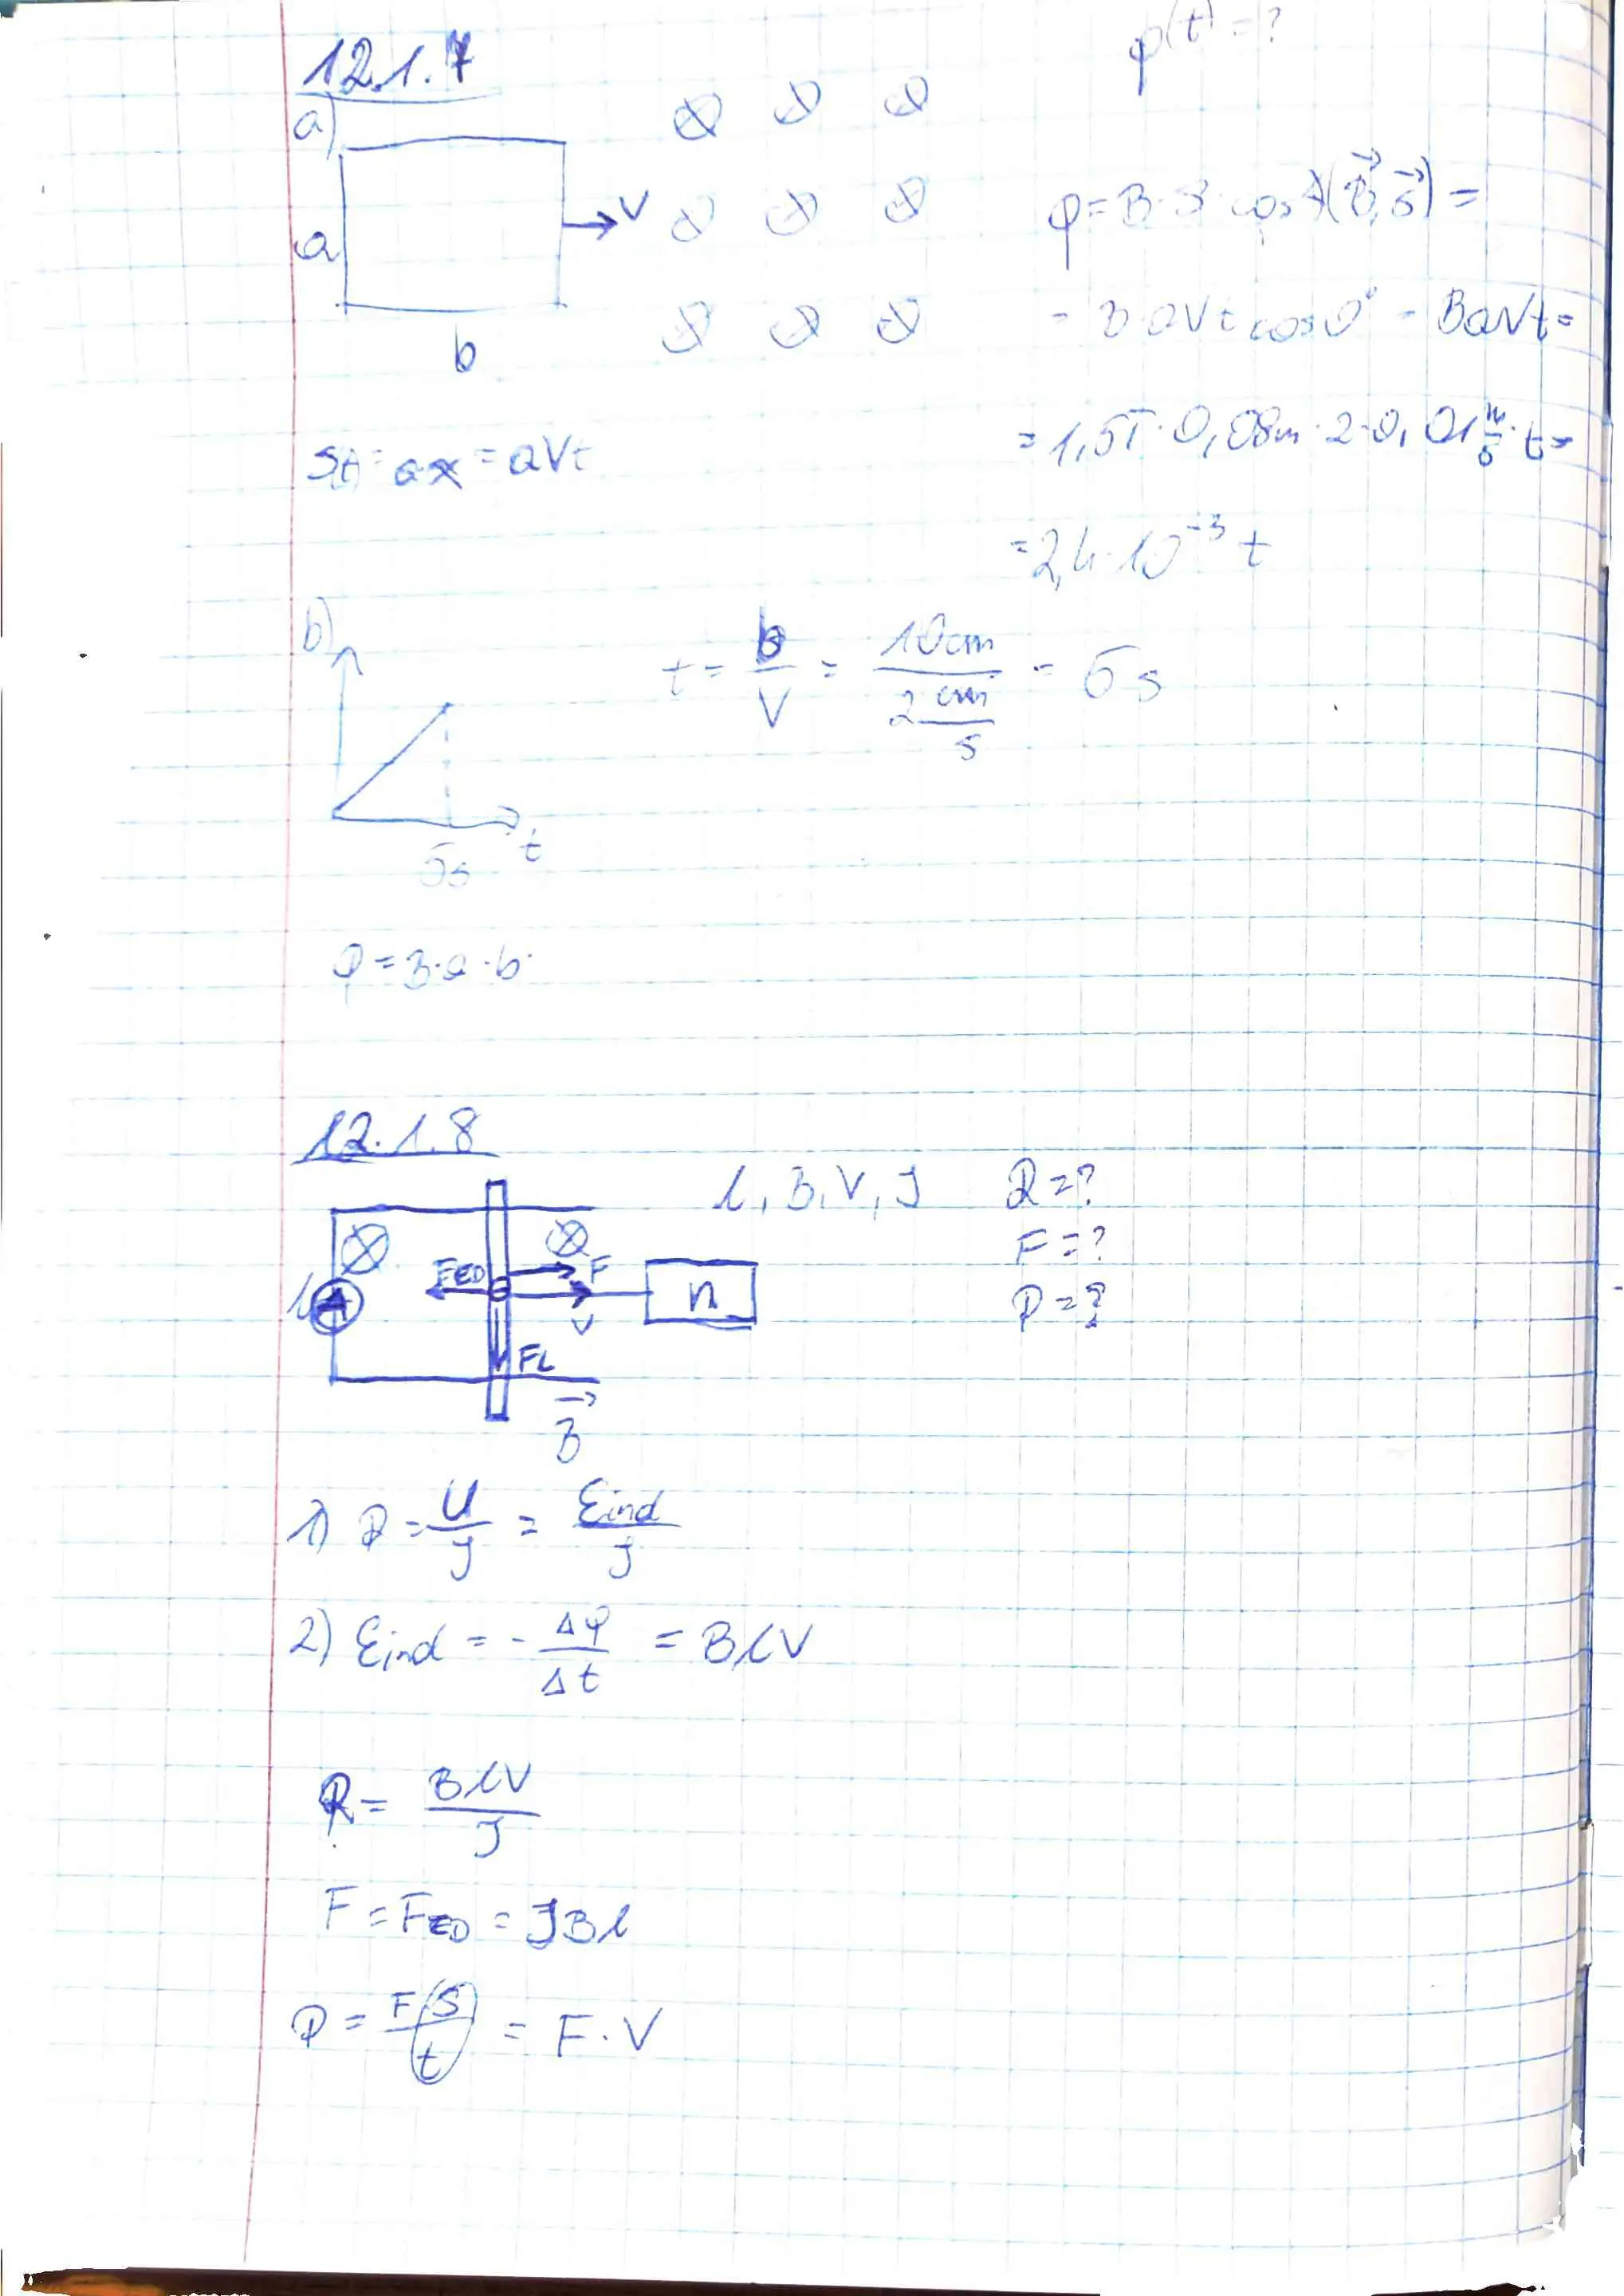 12.1.7
φ(t) = ?
a)
a
b
V
φ = B·S·cos∢(B⃗,S⃗) =
= B·aVt cos0° = BaVt =
= 1,5T·0,08m·2·0,01 m/s · t =
= 2,4·10⁻³ t
St = ax = aVt
b)
t = b/V = 10cm / 2 cm/s = 5s
5s
t
φ = B·a·b
12.1.8
l, B, V, I R = ?
F = ?
P = ?
FED
F
V
n
l
A
FL
B⃗
1) R = U/I = Eind/I
2) Eind = - Δφ/Δt = BlV
R = BlV/I
F = FED = IBl
P = F S/t = F·V